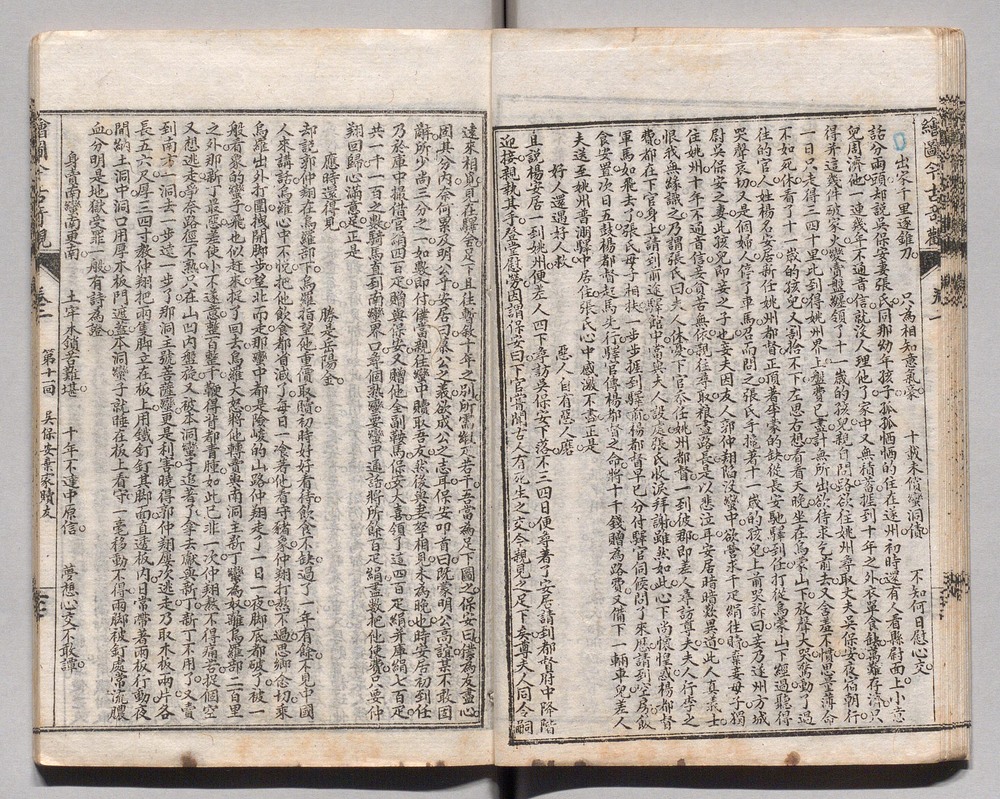 繪圖今古奇觀
出家千里逐錐刀 只為相知意氣豪 十載未償蠻洞債 不知何日慰心交
話分兩頭却說吳保安妻張氏同那幼年孩子孤孤恓恓的住在遂州初時還有人看縣尉面上小意
兒周濟他一連幾年不通音信就沒人理他了家中又無積蓄捱到十年之外衣單食缺萬難存濟只
得并這幾件破家火變賣盤纏領了十一歲的孩兒親自問路欲往姚州尋取丈夫吳保安夜宿朝行
一日只走得三四十里比到得姚州界上盤費已盡計無所出欲待求乞前去又含羞不慣思量薄命
不如死休看了十一歲的孩兒又割捨不下左思右想看看天晚坐在烏蒙山下放聲大哭驚動了過
往的官人姓楊名安居新任姚州都督正頂著李蒙的缺從長安馳驛到任打從烏蒙山下經過聽得
哭聲哀切人是個婦人停了車馬召而問之張氏手攙著十一歲的孩兒上前哭訴曰妾乃遂州方城
尉吳保安之妻此孩兒即妾之子也妾夫因友人郭仲翔陷沒蠻中欲營求千疋絹往時棄妾母子獨
住姚州十年不通音信妾貧苦無依親往尋取粮盡路長是以悲泣耳安居暗暗歎異道此人真義士
恨我無緣識之乃謂張氏曰夫人休憂下官忝任姚州都督一到彼郡即差人尋訪尊夫夫人行李之
費都在下官身上請到前途驛館中當與夫人設處張氏收淚拜謝雖然如此心下尚懷惶惑楊都督
軍馬如飛去了張氏母子相扶一步步捱到驛前楊都督早已分付驛官伺候問了來歷請到空房飯
食安置次日五鼓楊都督起馬先行驛官傳楊都督之命將十千錢贈為路費又備下一輛車兒差人
夫送至姚州普淜驛中居住張氏心中感激不盡正是
好人還遇好人救 惡人自有惡人磨
且說楊安居一到姚州便差人四下尋訪吳保安下落不三四日便尋著了安居請到都督府中降階
迎接親執其手登堂慰勞因謂保安曰下官常聞古人有死生之交今親見之足下矣尊夫人同令嗣
遠來相覓見在驛舍足下且往暫敘十年之別所需絹疋若干吾當為足下圖之保安曰僕為友盡心
固其分內奈何累及明公乎安居曰慕公之義欲成公之志耳保安叩首曰既蒙明公高誼某不敢固
辭所少尚三分之一如數即付僕當親往蠻中贖取吾友然後與妻孥相見未為晚也時安居初到任
乃於庫中撮借官絹四百疋贈與保安又贈他全副鞍馬保安大喜領了這四百疋絹并庫絹七百疋
共一千一百之數騎馬直到南蠻界口尋個熟蠻往蠻中通話將所餘百疋絹盡數把他使費只要仲
翔回歸心滿意足正是
應時還得見 勝是岳陽金
却說郭仲翔在烏羅部下烏羅指望他重價取贖初時好好看待飲食不缺過了一年有餘不見中國
人來講話烏羅心中不悅把他飲食都裁減了每日一飡著他看守豬象仲翔打熬不過思鄉念切乘
烏羅出外打圍拽開脚步望北而走那蠻中都是險峻的山路仲翔走了一日一夜脚底都破了被一
般看象的蠻子飛也似赶來捉了回去烏羅大怒將他轉賣與南洞主新丁蠻為奴離烏羅部二百里
之外那新丁最惡差使小不遂意整百皮鞭鞭得背都青腫如此已非一次仲翔熬不得痛苦捉個空
又想逃走爭奈路徑不熟只在山凹內盤旋又被本洞蠻子追著了拿去獻與新丁新丁不用了又賣
到南方一洞去一步遠一步了那洞主號菩薩蠻更是利害曉得郭仲翔屢次逃走乃取木板兩片各
長五六尺厚三四寸教仲翔把兩隻脚立在板上用鐵釘釘其脚面直透板內日常帶著兩板行動夜
間納土洞中洞口用厚木板門遮蓋本洞蠻子就睡在板上看守一毫移動不得兩脚被釘處常流膿
血分明是地獄受罪一般有詩為證
身賣南蠻南更南 土牢木鎖苦難堪 十年不達中原信 夢想心交不敢譚
繪圖今古奇觀 卷二 第十一回 吳保安棄家贖友